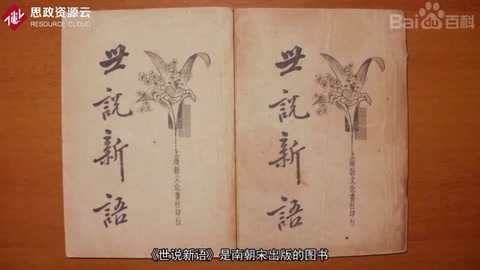 思政资源云
RESOURCE CLOUD
Bai百科
世說新語
上海新文化書社印行
世說新語
上海新文化書社印行
《世说新语》是南朝宋出版的图书